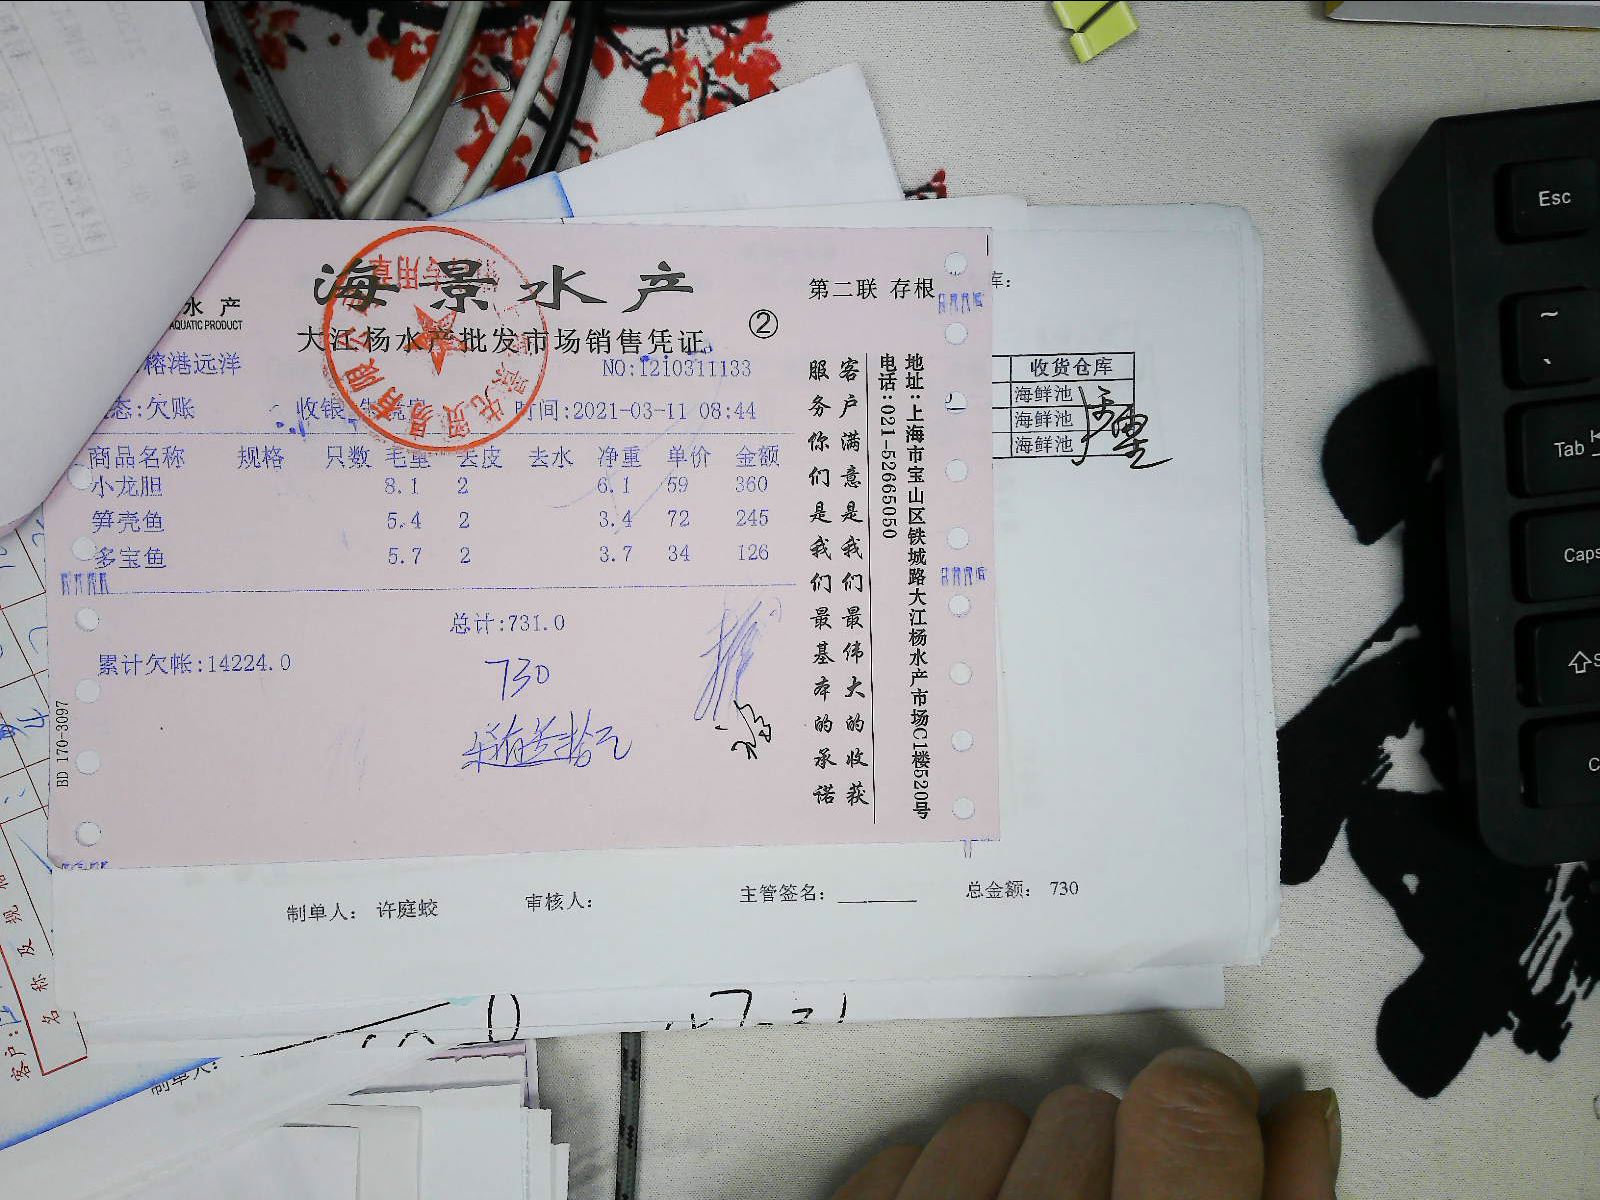 海景水产
第二联 存根
水产
AQUATIC PRODUCT
大江杨水产批发市场销售凭证
②
榕港远洋
NO:1210311133
态:欠账 收银 时间:2021-03-11 08:44
商品名称 规格 只数 毛重 去皮 去水 净重 单价 金额
小龙胆 8.1 2 6.1 59 360
笋壳鱼 5.4 2 3.4 72 245
多宝鱼 5.7 2 3.7 34 126
总计:731.0
累计欠帐:14224.0
730
BD 170-3097
客户满意是我们最伟大的收获
服务你们是我们最基本的承诺
地址:上海市宝山区铁城路大江杨水产市场C1楼520号
电话:021-52665050
库:
收货仓库
海鲜池
海鲜池
海鲜池
制单人: 许庭蛟 审核人: 主管签名: 总金额: 730
制单人:
客户:
名称及规格
Esc
~
、
Tab
Caps